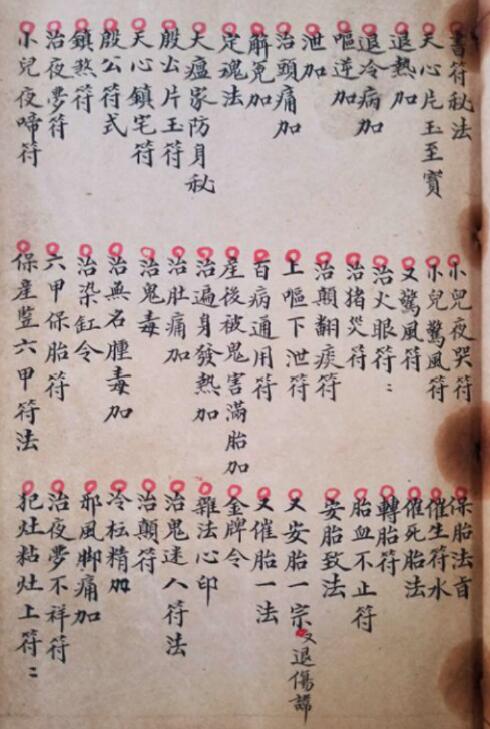 書符秘法
天心片玉至寳
退熱加
退冷病加
嘔逆加
泄加
治頭痛加
解冤加
定魂法
大瘟家防身秘
殷公片玉符
天心鎮宅符
殷公符式
鎮煞符
治夜夢符
小兒夜啼符
小兒夜哭符
小兒驚風符
又驚風符
治火眼符：
治猪災符
治顛翻痰符
上嘔下泄符
百病通用符
產後被鬼害滿胎加
治遍身發熱加
治肚痛加
治鬼毒
治無名腫毒加
治染缸令
六甲保胎符
保產監六甲符法
保胎法首
催生符水
催死胎法
轉胎符
胎血不止符
安胎致法
又安胎一宗又退傷
又催胎一法
金牌令
雜法心印
治鬼迷人符法
治顛符
冷枟精加
邪風脚痛加
治夜夢不祥符
犯灶粘灶上符：